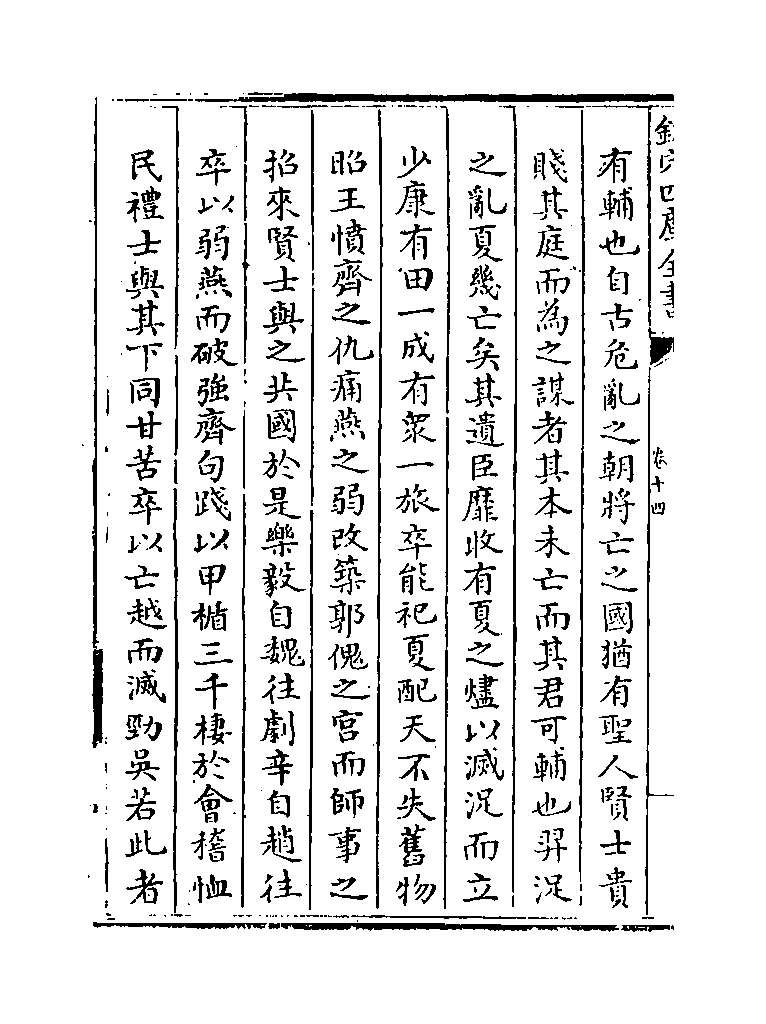 欽定四庫全書
卷十四
有輔也自古危亂之朝將亡之國猶有聖人賢士貴
賤其庭而為之謀者其本未亡而其君可輔也羿浞
之亂夏幾亡矣其遺臣靡收有夏之燼以滅浞而立
少康有田一成有衆一旅卒能祀夏配天不失舊物
昭王憤齊之仇痛燕之弱改築郭傀之宮而師事之
招來賢士與之共國於是樂毅自魏往劇辛自趙往
卒以弱燕而破強齊句踐以甲楯三千棲於會稽恤
民禮士與其下同甘苦卒以亡越而滅勁吳若此者